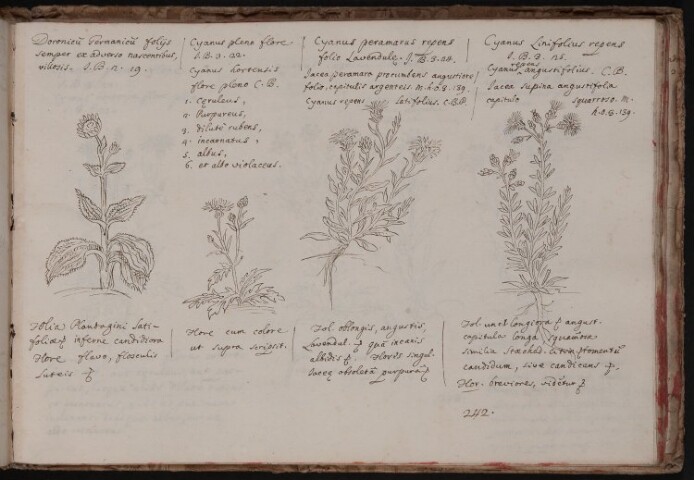 Doronicū Germanicū folijs
semper ex adverso nascentibus,
villosis. J.B.
Cyanus pleno flore
J.B. 3. 22.
Cyanus hortensis
flore pleno C.B.
1. Cęruleus,
2. Purpureus,
3. dilutè rubens,
4. incarnatus,
5. albus,
6. ex albo violaceus.
Cyanus peramarus repens
folio Lavendulę. J.B. 3. 24.
Jacea peramara procumbens angustiore
folio, capitulis argenteis M.h.o.g. 139.
Cyanus repens latifolius. C.B.P.
Cyanus Linifolius repens
J.B. 3. 25.
Cyanus repens angustifolius. C.B.
Jacea supina angustifolia
capitulo squarroso. M.
h.o.g. 139.
Folia Plantagini lati-
foliæ inferne candidiora
Flore flavo, flosculis
luteis
Flore cum colore
ut supra scripsit.
Fol. oblongis, angustis,
Lavendul. incanis
albidis Floris singul.
Jaceę obsoletā purpurā
Fol. longiora angust.
capitula longa squamea
similia Stœchad.
candidum, sive candicans
Flor. breviores,
242.